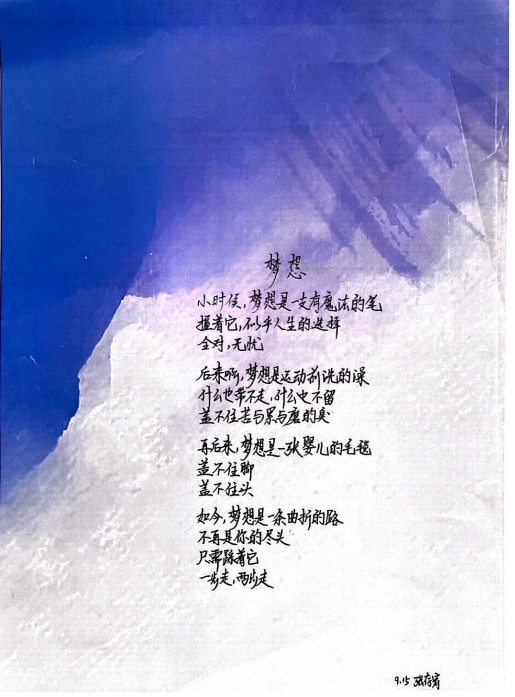 梦想
小时候，梦想是一支有魔法的笔
握着它，似乎人生的选择
全对，无忧
后来啊，梦想是运动前洗的澡
什么也带不走，什么也不留
盖不住苦与累与魔的臭
再后来，梦想是一张婴儿的毛毯
盖不住脚
盖不住头
如今，梦想是一条曲折的路
不再是你的尽头
只需踩着它
一步走，两步走
9.15